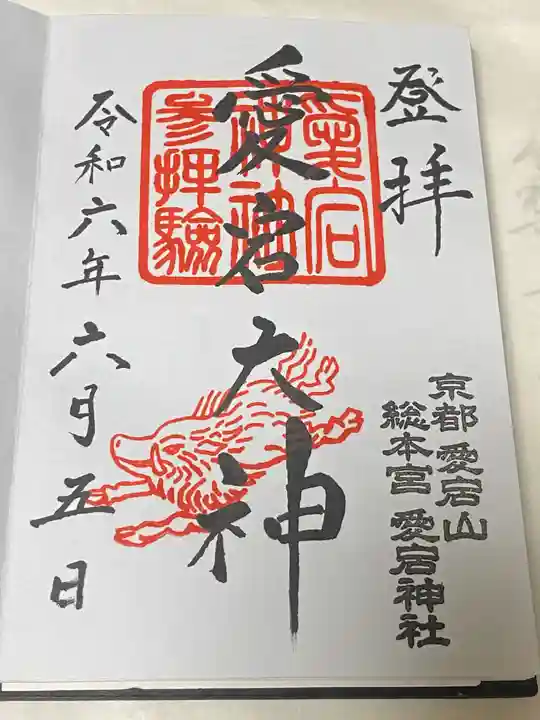 登拝
愛宕大神
愛宕
神神
参拝驗
令和六年六月五日
京都 愛宕山
総本宮 愛宕神社